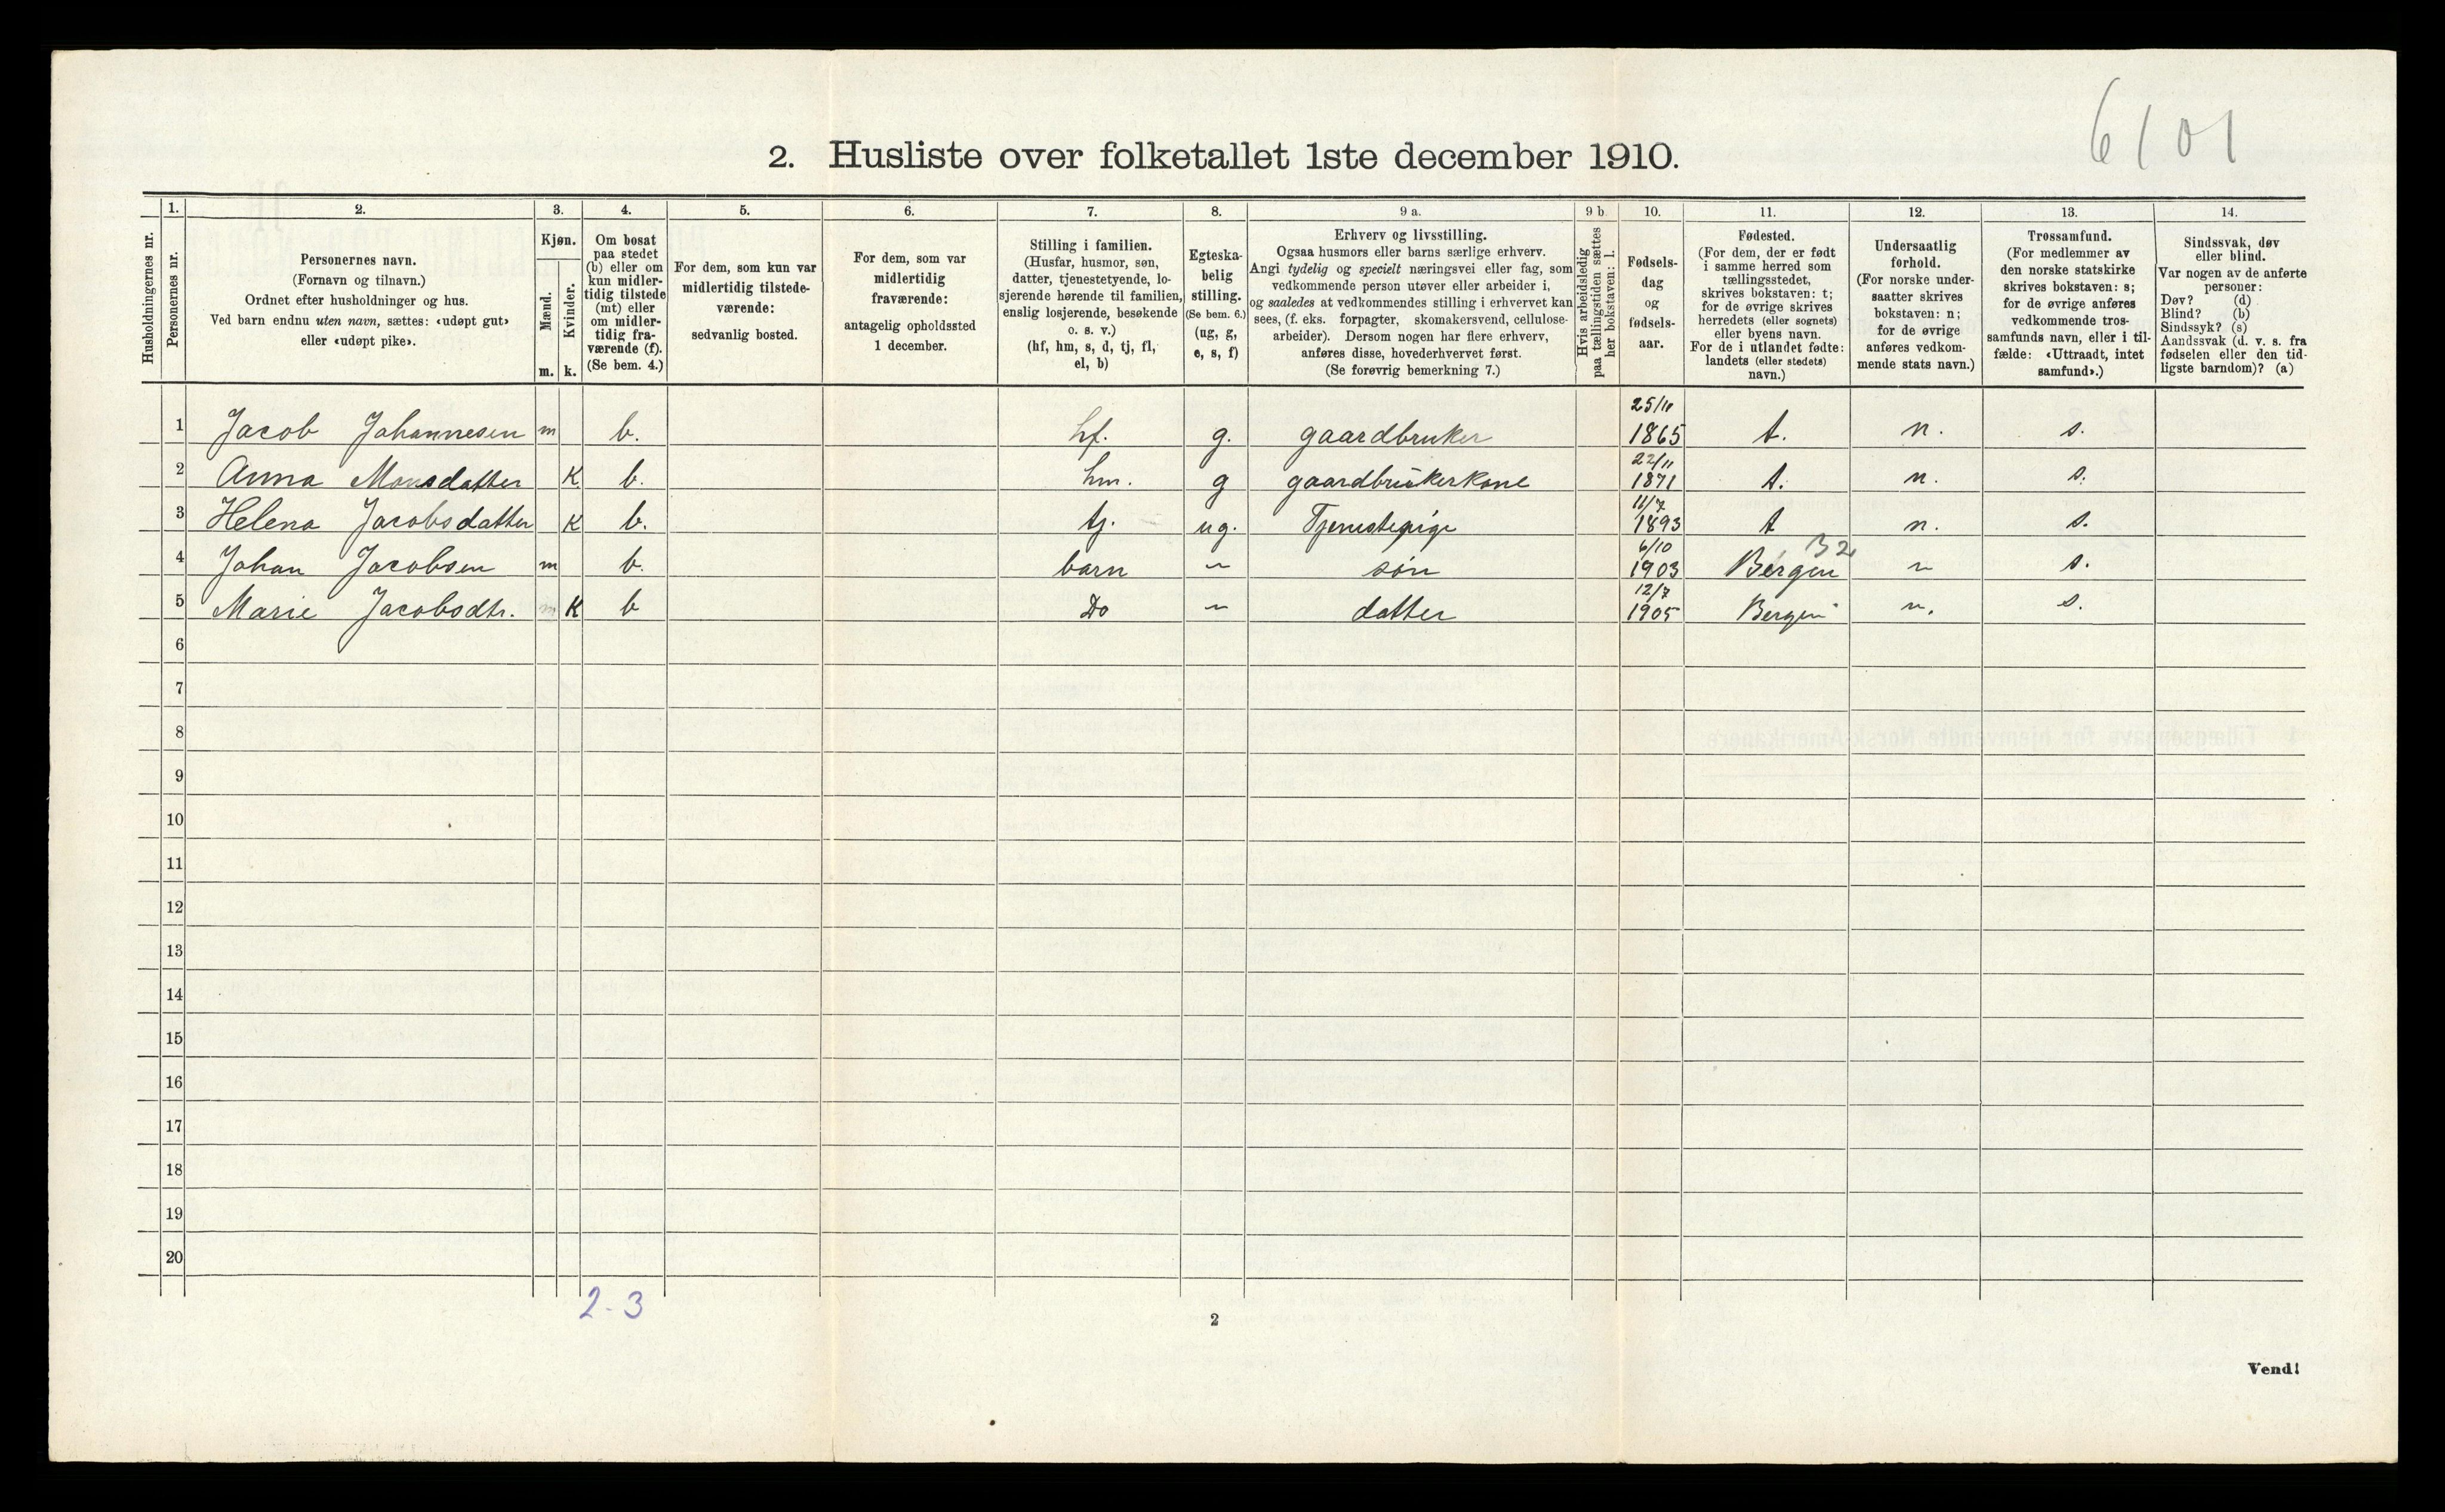 6101
2. Husliste over folketallet 1ste december 1910.
1. 2. 3. 4. 5. 6. 7. 8. 9 a. 9 b. 10. 11. 12. 13. 14.
Husholdningernes nr.
Personernes nr.
Personernes navn.
(Fornavn og tilnavn.)
Ordnet efter husholdninger og hus.
Ved barn endnu uten navn, sættes: «udøpt gut»
eller «udøpt pike».
Kjøn.
Mænd.
Kvinder.
m. k.
Om bosat
paa stedet
(b) eller om
kun midler-
tidig tilstede
(mt) eller
om midler-
tidig fra-
værende (f).
(Se bem. 4.)
For dem, som kun var
midlertidig tilstede-
værende:
sedvanlig bosted.
For dem, som var
midlertidig
fraværende:
antagelig opholdssted
1 december.
Stilling i familien.
(Husfar, husmor, søn,
datter, tjenestetyende, lo-
sjerende hørende til familien,
enslig losjerende, besøkende
o. s. v.)
(hf, hm, s, d, tj, fl,
el, b)
Egteska-
belig
stilling.
(Se bem. 6.)
(ug, g,
e, s, f)
Erhverv og livsstilling.
Ogsaa husmors eller barns særlige erhverv.
Angi tydelig og specielt næringsvei eller fag, som
vedkommende person utøver eller arbeider i,
og saaledes at vedkommendes stilling i erhvervet kan
sees, (f. eks. forpagter, skomakersvend, cellulose-
arbeider). Dersom nogen har flere erhverv,
anføres disse, hovederhvervet først.
(Se forøvrig bemerkning 7.)
Hvis arbeidsledig
paa tællingstiden sættes
her bokstaven: l.
Fødsels-
dag
og
fødsels-
aar.
Fødested.
(For dem, der er født
i samme herred som
tællingsstedet,
skrives bokstaven: t;
for de øvrige skrives
herredets (eller sognets)
eller byens navn.
For de i utlandet fødte:
landets (eller stedets)
navn.)
Undersaatlig
forhold.
(For norske under-
saatter skrives
bokstaven: n;
for de øvrige
anføres vedkom-
mende stats navn.)
Trossamfund.
(For medlemmer av
den norske statskirke
skrives bokstaven: s;
for de øvrige anføres
vedkommende tros-
samfunds navn, eller i til-
fælde: «Uttraadt, intet
samfund».)
Sindssvak, døv
eller blind.
Var nogen av de anførte
personer:
Døv? (d)
Blind? (b)
Sindssyk? (s)
Aandssvak (d. v. s. fra
fødselen eller den tid-
ligste barndom)? (a)
1 Jacob Johannesen m b. hf. g. gaardbruker 25/11 1865 t. n. s.
2 Anna Monsdatter K b. hm. g gaardbrukerkone 22/11 1871 t. n. s.
3 Helena Jacobsdatter K b. tj. ug. Tjenestepige 11/7 1893 t n. s.
4 Johan Jacobsen m b. barn " søn 6/10 1903 Bergen 32 n s.
5 Marie Jacobsdtr. m K b Do " datter 12/7 1905 Bergen n. s.
6
7
8
9
10
11
12
13
14
15
16
17
18
19
20
2-3
2
Vend!